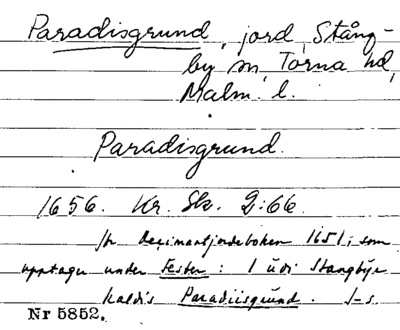 Paradisgrund, jord, Stång-
by sn, Torna hd,
Malm. l.
Paradisgrund.
1656. Kr. Sk. 2:66
jordeboken 1651; som
upptager under Fester: 1 udi Stangbye
kaldis Paradiisgrund. J-s.
Nr 5852.